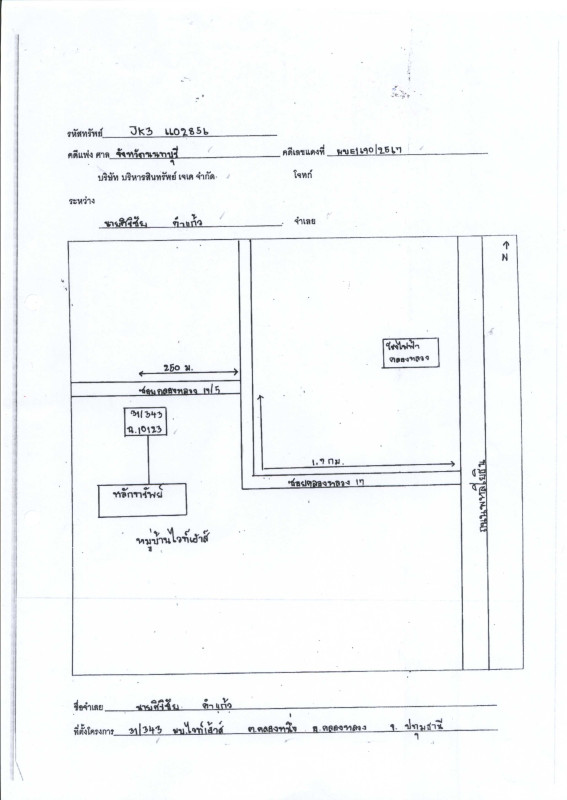 รหัสทรัพย์ JK3 1102856
คดีแพ่ง ศาล จังหวัดนนทบุรี คดีเลขแดงที่ ผบE1690/2567
บริษัท บริหารสินทรัพย์ เจเค จำกัด โจทก์
ระหว่าง
นายศิริชัย คำแก้ว จำเลย
N
โรงไฟฟ้า
คลองหลวง
250 ม.
ซอยคลองหลวง 17/5
31/343
ฉ.10123
1.7 กม.
ซอยคลองหลวง 17
ถนนพหลโยธิน
หลักทรัพย์
หมู่บ้านไวท์เฮ้าส์
ชื่อจำเลย นายศิริชัย คำแก้ว
ที่ตั้งโครงการ 31/343 มบ.ไวท์เฮ้าส์ ต.คลองหนึ่ง อ.คลองหลวง จ. ปทุมธานี